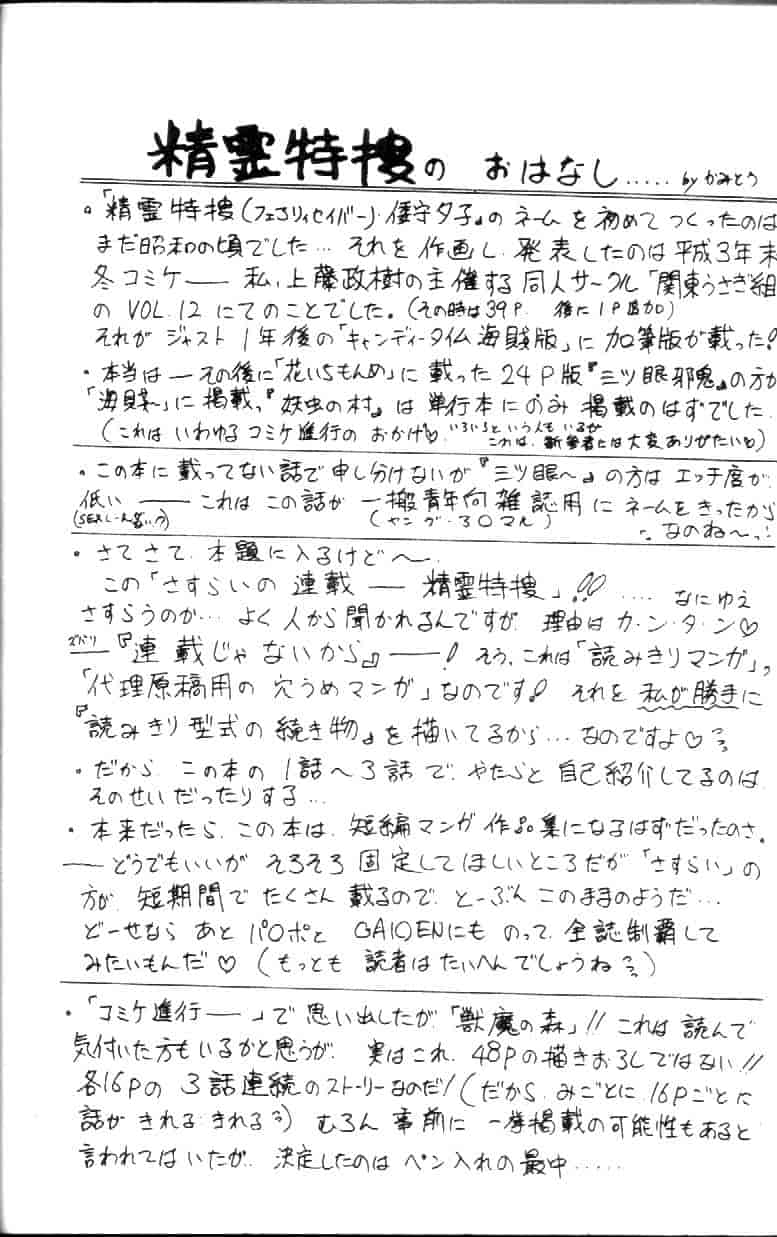 精霊特捜の おはなし..... by かみとう
・「精霊特捜(フェアリィセイバー)・倭守夕子』の ネームを 初めて つくったのは
まだ昭和の頃でした… それを 作画し、発表したのは 平成3年末
冬コミケ── 私、上藤政樹の主催する 同人サークル「関東うさぎ組
の VOL.12 にてのことでした。(その時は39P. 後に1P追加)
それが ジャスト 1年後の「キャンディータイム海賊版」に 加筆版が載った!
・本当は ― その後に「花いちもんめ」に 載った 24P版『三ツ眼邪鬼』の方が
「海賊〜」に掲載、『妖虫の村』は 単行本にのみ 掲載のはずでした.
(これは いわゆる コミケ進行の おかげ♡. いろいろという人もいるが これは、新参者には大変ありがたい♡)
・この本に 載ってない話で 申し分けないが『三ツ眼〜』の方は エッチ度が
低い ── これは この話が 一搬青年向雑誌用に ネームをきったから
(ヤング・30マル) なのね〜っ!
・さてさて、本題に入るけど〜.
この「さすらいの 連載 ── 精霊特捜」!! .... なにゆえ
さすらうのが… よく 人から聞かれるんですが、理由は カ・ン・タ・ン♡
ズバリ──『連載じゃないから』──! そう、これは「読みきりマンガ」、
「代理原稿用の 穴うめマンガ」なのです! それを 私が勝手に
『読みきり型式の続き物』を 描いてるから… なのですよ♡
・だから、この本の 1話〜3話で、やたらと 自己紹介してるのは
そのせいだったりする…
・本来だったら、この本は、短編マンガ作品集になるはずだったのさ.
──どうでもいいが そろそろ 固定してほしいところだが「さすらい」の
方が、短期間で たくさん 載るので、とーぶん このままのようだ…
どーせなら あと パロポと GAIDENにも のって、全誌制覇して
みたいもんだ♡ (もっとも 読者は たいへんでしょうね)
・「コミケ進行──」で 思い出したが、「獣魔の森」!! これは 読んで
気付いた方もいるかと思うが、実はこれ、48Pの描きおろしではない!!
各16Pの 3話連続のストーリーなのだ!(だから、みごとに、16Pごとに
話が きれる きれる) むろん 事前に 一挙掲載の可能性もあると
言われてはいたが、決定したのは ペン入れの最中.....